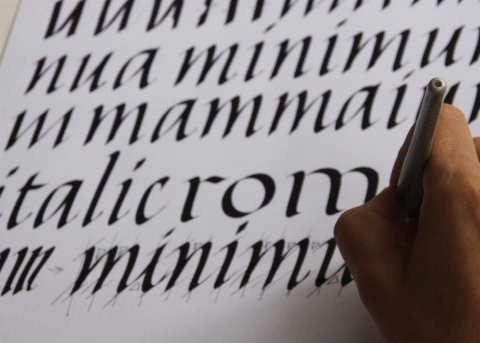 nua minimu
m mammai
italic rom
minimu